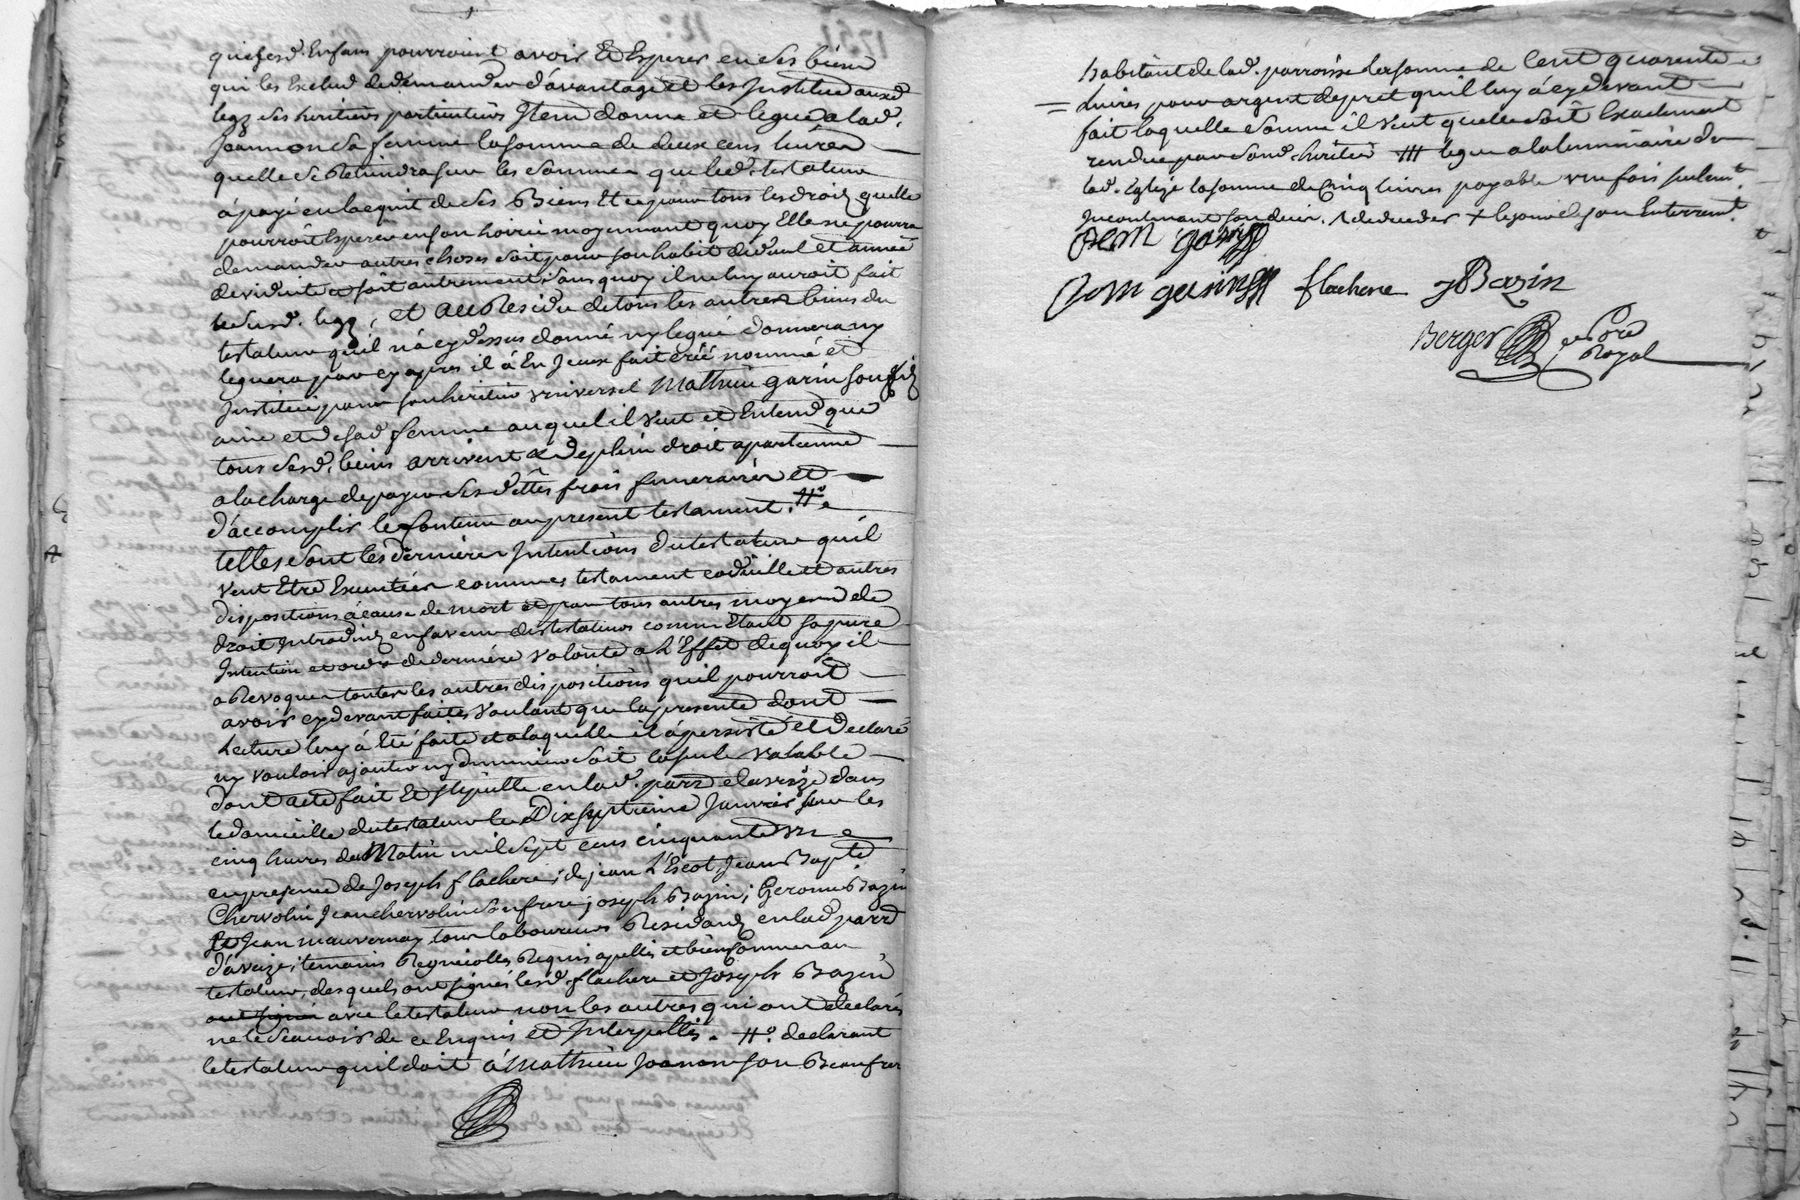 quesesd. Enfans pourroient avoir Et Esperer en ses biens
qui les Exclud de demander d'avantage et les Institue auxd
legz ses heritiers particuliers Item donne et legue a lad.
Joannon sa femme la somme de deux cens livres
quelle se Retiendra sur les sommes que led. testateur
a payé en lacquit de ses Biens Et ce pour tous les droitz quelle
pourroit Esperer en son hoirie moyennant quoy Elle ne pourra
demander autres choses soit pour son habit de deuil et année
de viduité soit autrement sans quoy il ne luy auroit fait
le susd. legz, et au Residu de tous les autres biens du
testateur quil n'a cy dessus donné ny legué donnera ny
leguera par cy apres il á En Jceux fait créé nommé et
Jnstitué pour son heritier vniversel Mathieu garin son filz
ainé et de sad femme auquel il veut et Entend que
tous sesd. biens arrivent & de plein droit apartienne
a la charge de payer ses dettes frais funeraires et
d'accomplir le Contenu au present testament. #e
telles sont les dernieres Jntentions du testateur quil
veut Etre Executées comme testament codicille et autres
dispositions á cause de mort et par tous autres moyens de
droit Introduitz en faveur des testateurs comme Etant sa pure
Intention et ordre de derniére volonté a L'Effet de quoy il
a Revoqué toutes les autres dispositions quil pourroit
avoir cy devant faites voulant que la presente dont
Lecture luy á Eté faite et a laquelle il á persisté et declaré
ny vouloir ajouter ny diminuer soit la seule valable
dont acte fait Et stipulle en lad. parr d'aveize dans
le domicille du testateur le Dix septieme Janvier sur les
cinq heures du Matin mil sept cens cinquante un
en presence de Joseph flachere; de jean L'Escot Jean Bapte
Chervolin Jean chervolin son frere; joseph Bazin; Gerome Bazin
Et Jean mauvernay tous laboureurs Residantz en lad parr
d'aveize; temoins Requis apellés et bien Connus au
testateur, desquels ont signés lesd. flachere et Joseph Bazin
ont signés avec le testateur non les autres qui ont declarés
ne le sçauoir de ce Enquis et Interpellés. #. declarant
le testateur quil doit á Mathieu Joannon son Beaufrere
habitant de lad. parroisse la somme de Cent quarente
Livres pour argent de pret quil luy á cy devant
fait laquelle somme il veut quelle soit Exactement
rendue par sond. heritier ### legue a la luminaire de
lad. Eglise la somme de Cinq livres payable vne fois seulemt.
Incontinant son × le jour de son Enterremt.
garin
garin flachere J Bazin
Berger
Royal